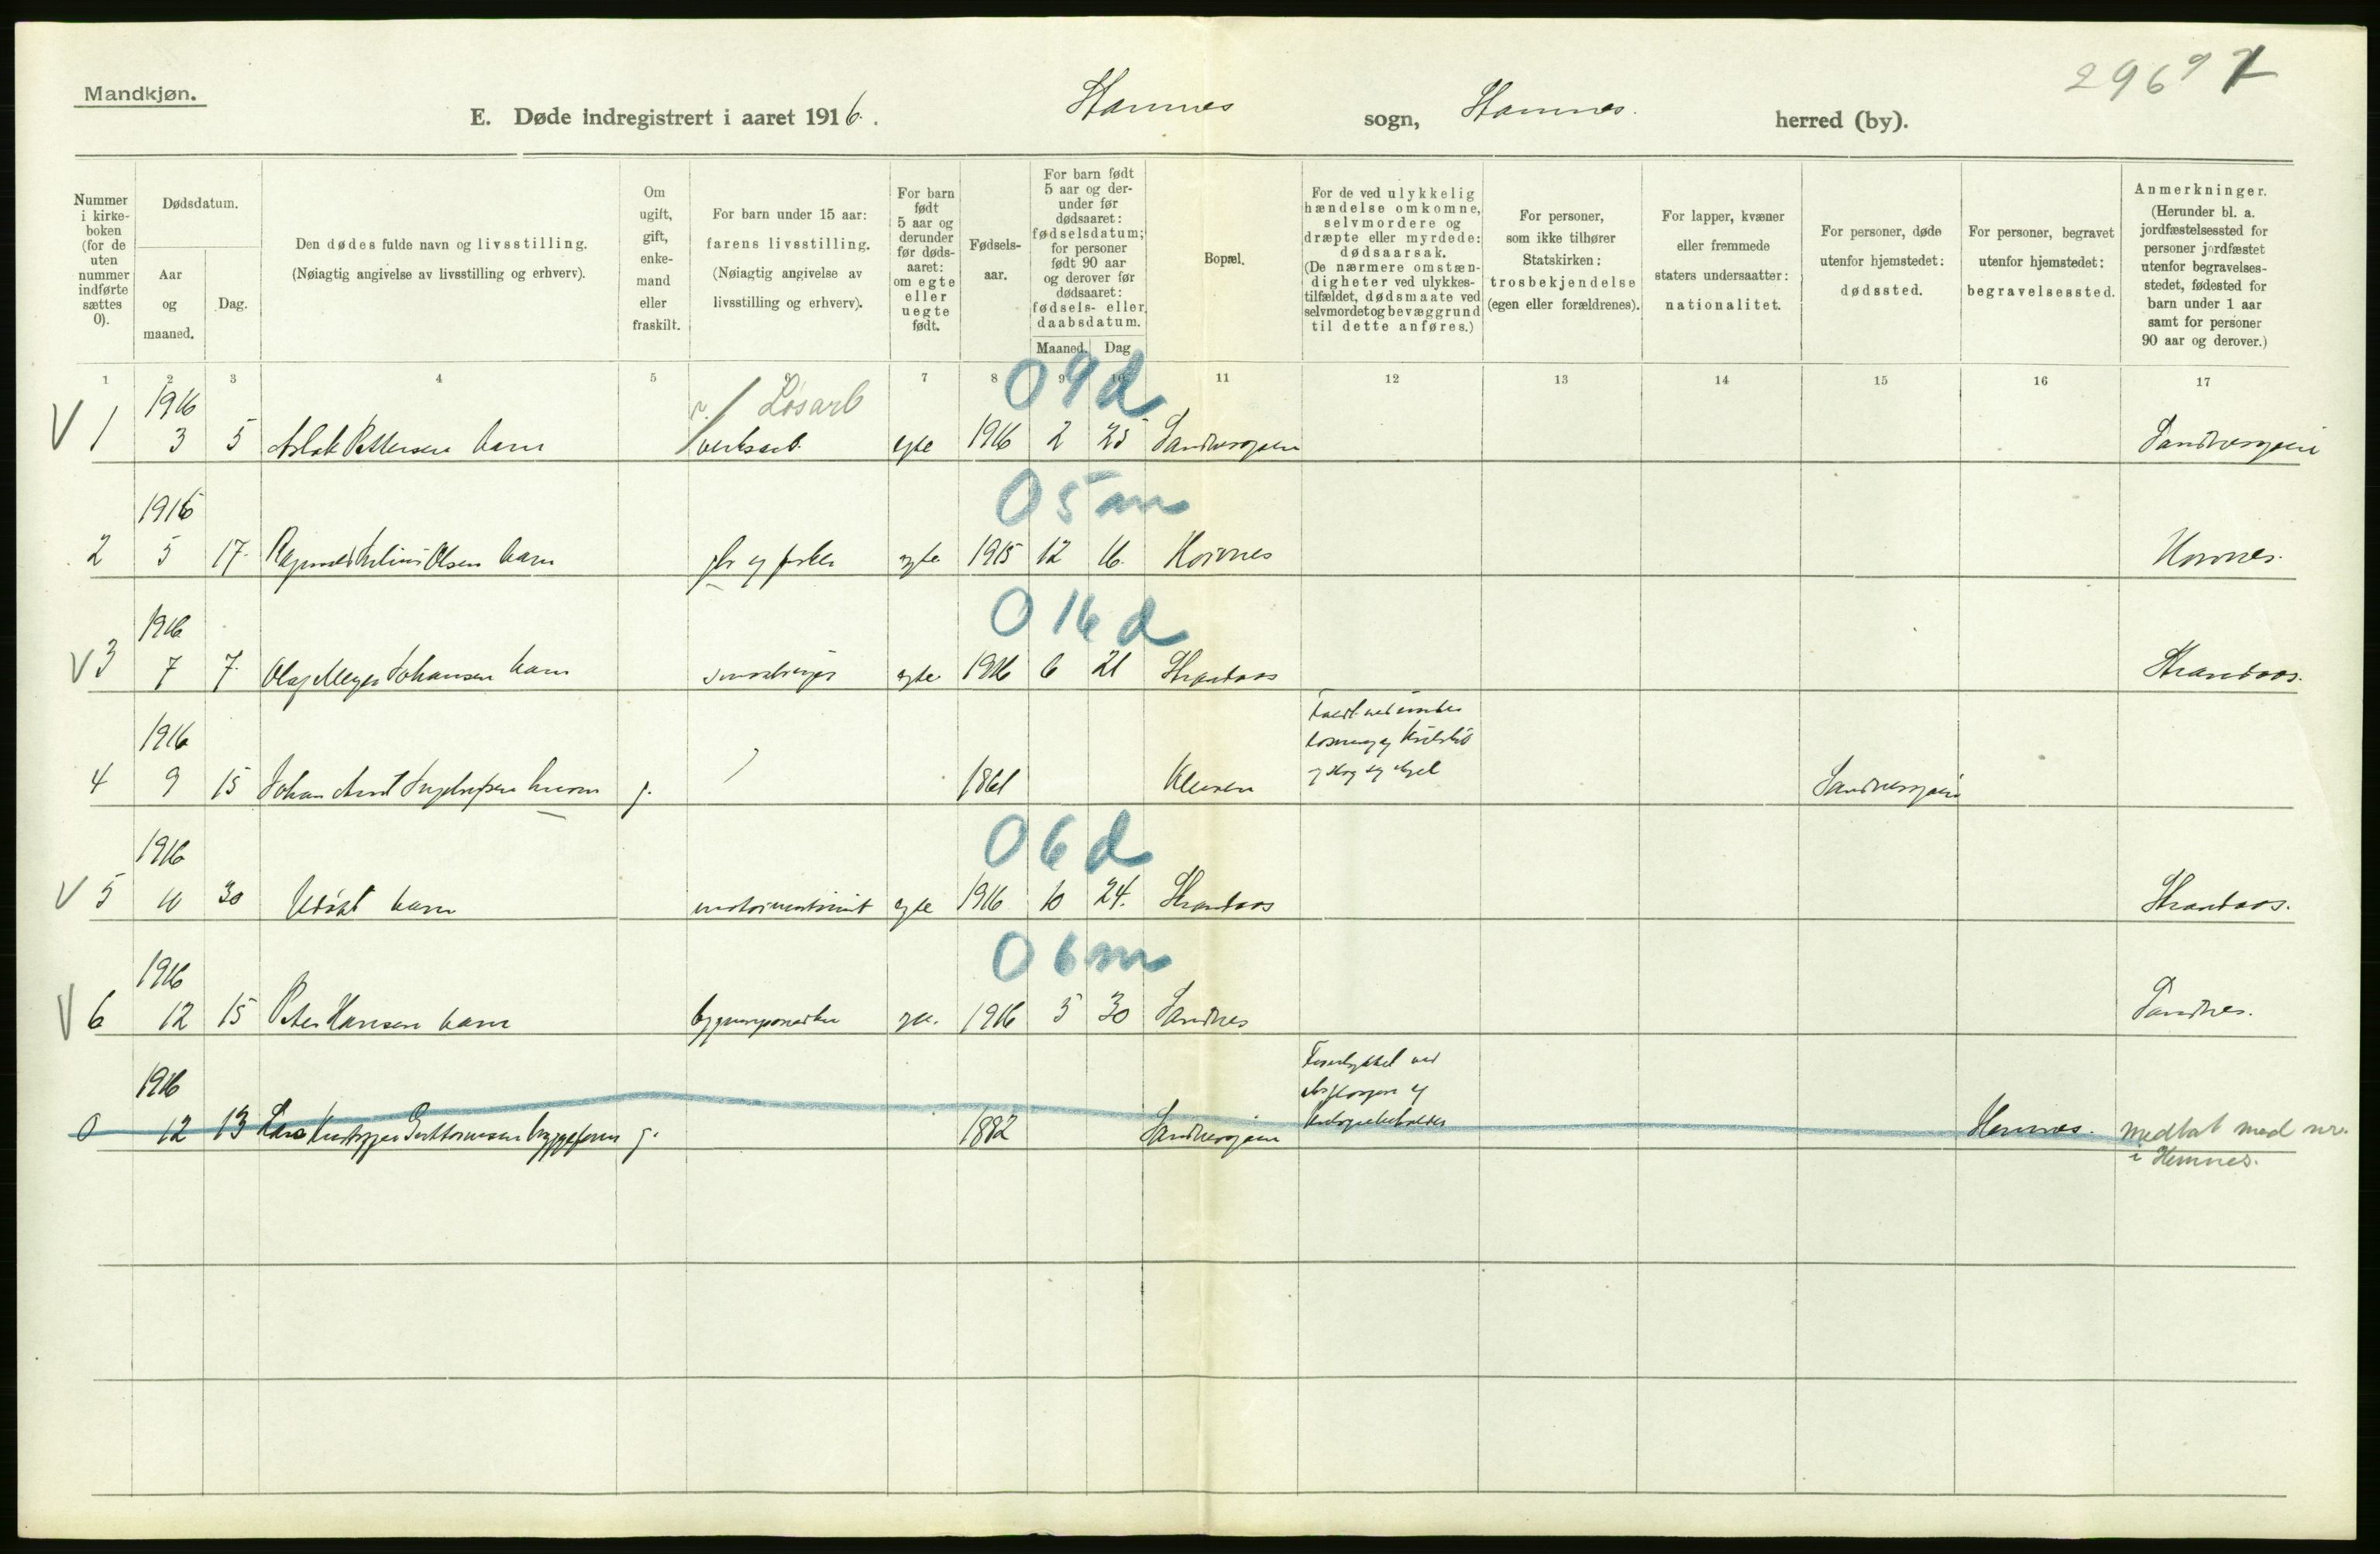 Mandkjøn.
2969 7
E. Døde indregistrert i aaret 1916. Hamnes sogn, Hamnes. herred (by).
Nummer i kirkeboken (for de uten nummer indførte sættes 0).
Dødsdatum.
Aar og maaned.
Dag.
Den dødes fulde navn og livsstilling.
(Nøiagtig angivelse av livsstilling og erhverv).
Om ugift, gift, enkemand eller fraskilt.
For barn under 15 aar: farens livsstilling.
(Nøiagtig angivelse av livsstilling og erhverv).
For barn født 5 aar og derunder før dødsaaret: om egte eller uegte født.
Fødselsaar.
For barn født 5 aar og derunder før dødsaaret: fødselsdatum; for personer født 90 aar og derover før dødsaaret: fødsels- eller daabsdatum.
Maaned. Dag
Bopæl.
For de ved ulykkelig hændelse omkomne, selvmordere og dræpte eller myrdede: dødsaarsak.
(De nærmere omstændigheter ved ulykkestilfældet, dødsmaate ved selvmordet og bevæggrund til dette anføres.)
For personer, som ikke tilhører Statskirken: trosbekjendelse (egen eller forældrenes).
For lapper, kvæner eller fremmede staters undersaatter: nationalitet.
For personer, døde utenfor hjemstedet: dødssted.
For personer, begravet utenfor hjemstedet: begravelsessted.
Anmerkninger.
(Herunder bl. a. jordfæstelsessted for personer jordfæstet utenfor begravelsesstedet, fødested for barn under 1 aar samt for personer 90 aar og derover.)
1 2 3 4 5 6 7 8 9 10 11 12 13 14 15 16 17
1916 Løsarb 09d
V 1 3 5 Aslak Pettersen barn verksarb. egte 1916 2 25 Sandnessjøen Sandnessjøen
1916 05m
2 5 17. Julius Olsen barn gbr og fisker egte 1915 12 16. Horvnes Horvnes.
1916 016d
V 3 7 7. Olaf Meyer Johansen barn egte 1916 6 21 Strandaas Strandaas.
1916
4 9 15 Johan Arnt g. 1861 Kleiven Sandnessjøen
1916 06d
V 5 10 30 Udøpt barn egte 1916 10 24. Strandaas Strandaas.
1916 06m
V 6 12 15 Peter Hansen barn 1916 5 30 Sandnes Sandnes.
1916 Forulykket ved
0 12 13 Guttormsen g. 1882 Sandnessjøen Hemnes. medtat med nr.
i Hemnes.